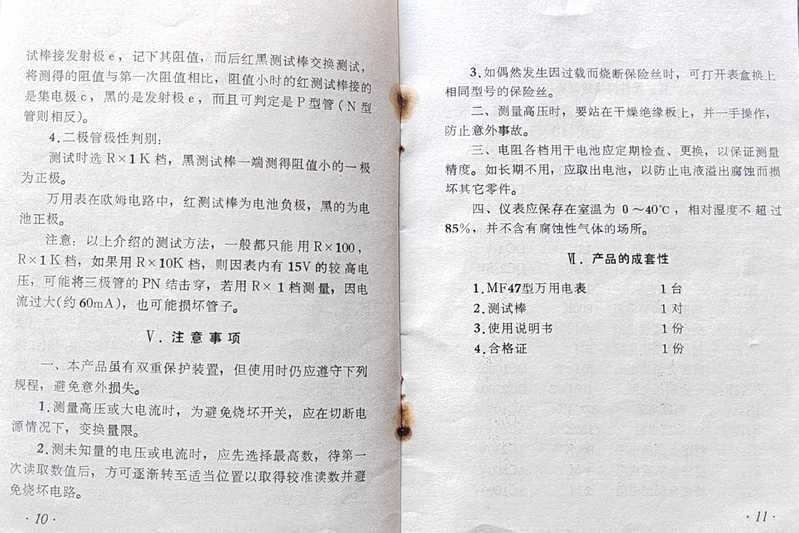 试棒接发射极e，记下其阻值，而后红黑测试棒交换测试，
将测得的阻值与第一次阻值相比，阻值小时的红测试棒接的
是集电极c，黑的是发射极e，而且可判定是P型管（N型
管则相反）。
4.二极管极性判别：
测试时选R×1K档，黑测试棒一端测得阻值小的一极
为正极。
万用表在欧姆电路中，红测试棒为电池负极，黑的为电
池正极。
注意：以上介绍的测试方法，一般都只能用R×100，
R×1K档，如果用R×10K档，则因表内有15V的较高电
压，可能将三极管的PN结击穿，若用R×1档测量，因电
流过大（约60mA），也可能损坏管子。
Ⅴ.注意事项
一、本产品虽有双重保护装置，但使用时仍应遵守下列
规程，避免意外损失。
1.测量高压或大电流时，为避免烧坏开关，应在切断电
源情况下，变换量限。
2.测未知量的电压或电流时，应先选择最高数，待第一
次读取数值后，方可逐渐转至适当位置以取得较准读数并避
免烧坏电路。
·10·
3.如偶然发生因过载而烧断保险丝时，可打开表盒换上
相同型号的保险丝。
二、测量高压时，要站在干燥绝缘板上，并一手操作，
防止意外事故。
三、电阻各档用干电池应定期检查、更换，以保证测量
精度。如长期不用，应取出电池，以防止电液溢出腐蚀而损
坏其它零件。
四、仪表应保存在室温为0～40℃，相对湿度不超过
85%，并不含有腐蚀性气体的场所。
Ⅵ.产品的成套性
1.MF47型万用电表 1台
2.测试棒 1对
3.使用说明书 1份
4.合格证 1份
·11·